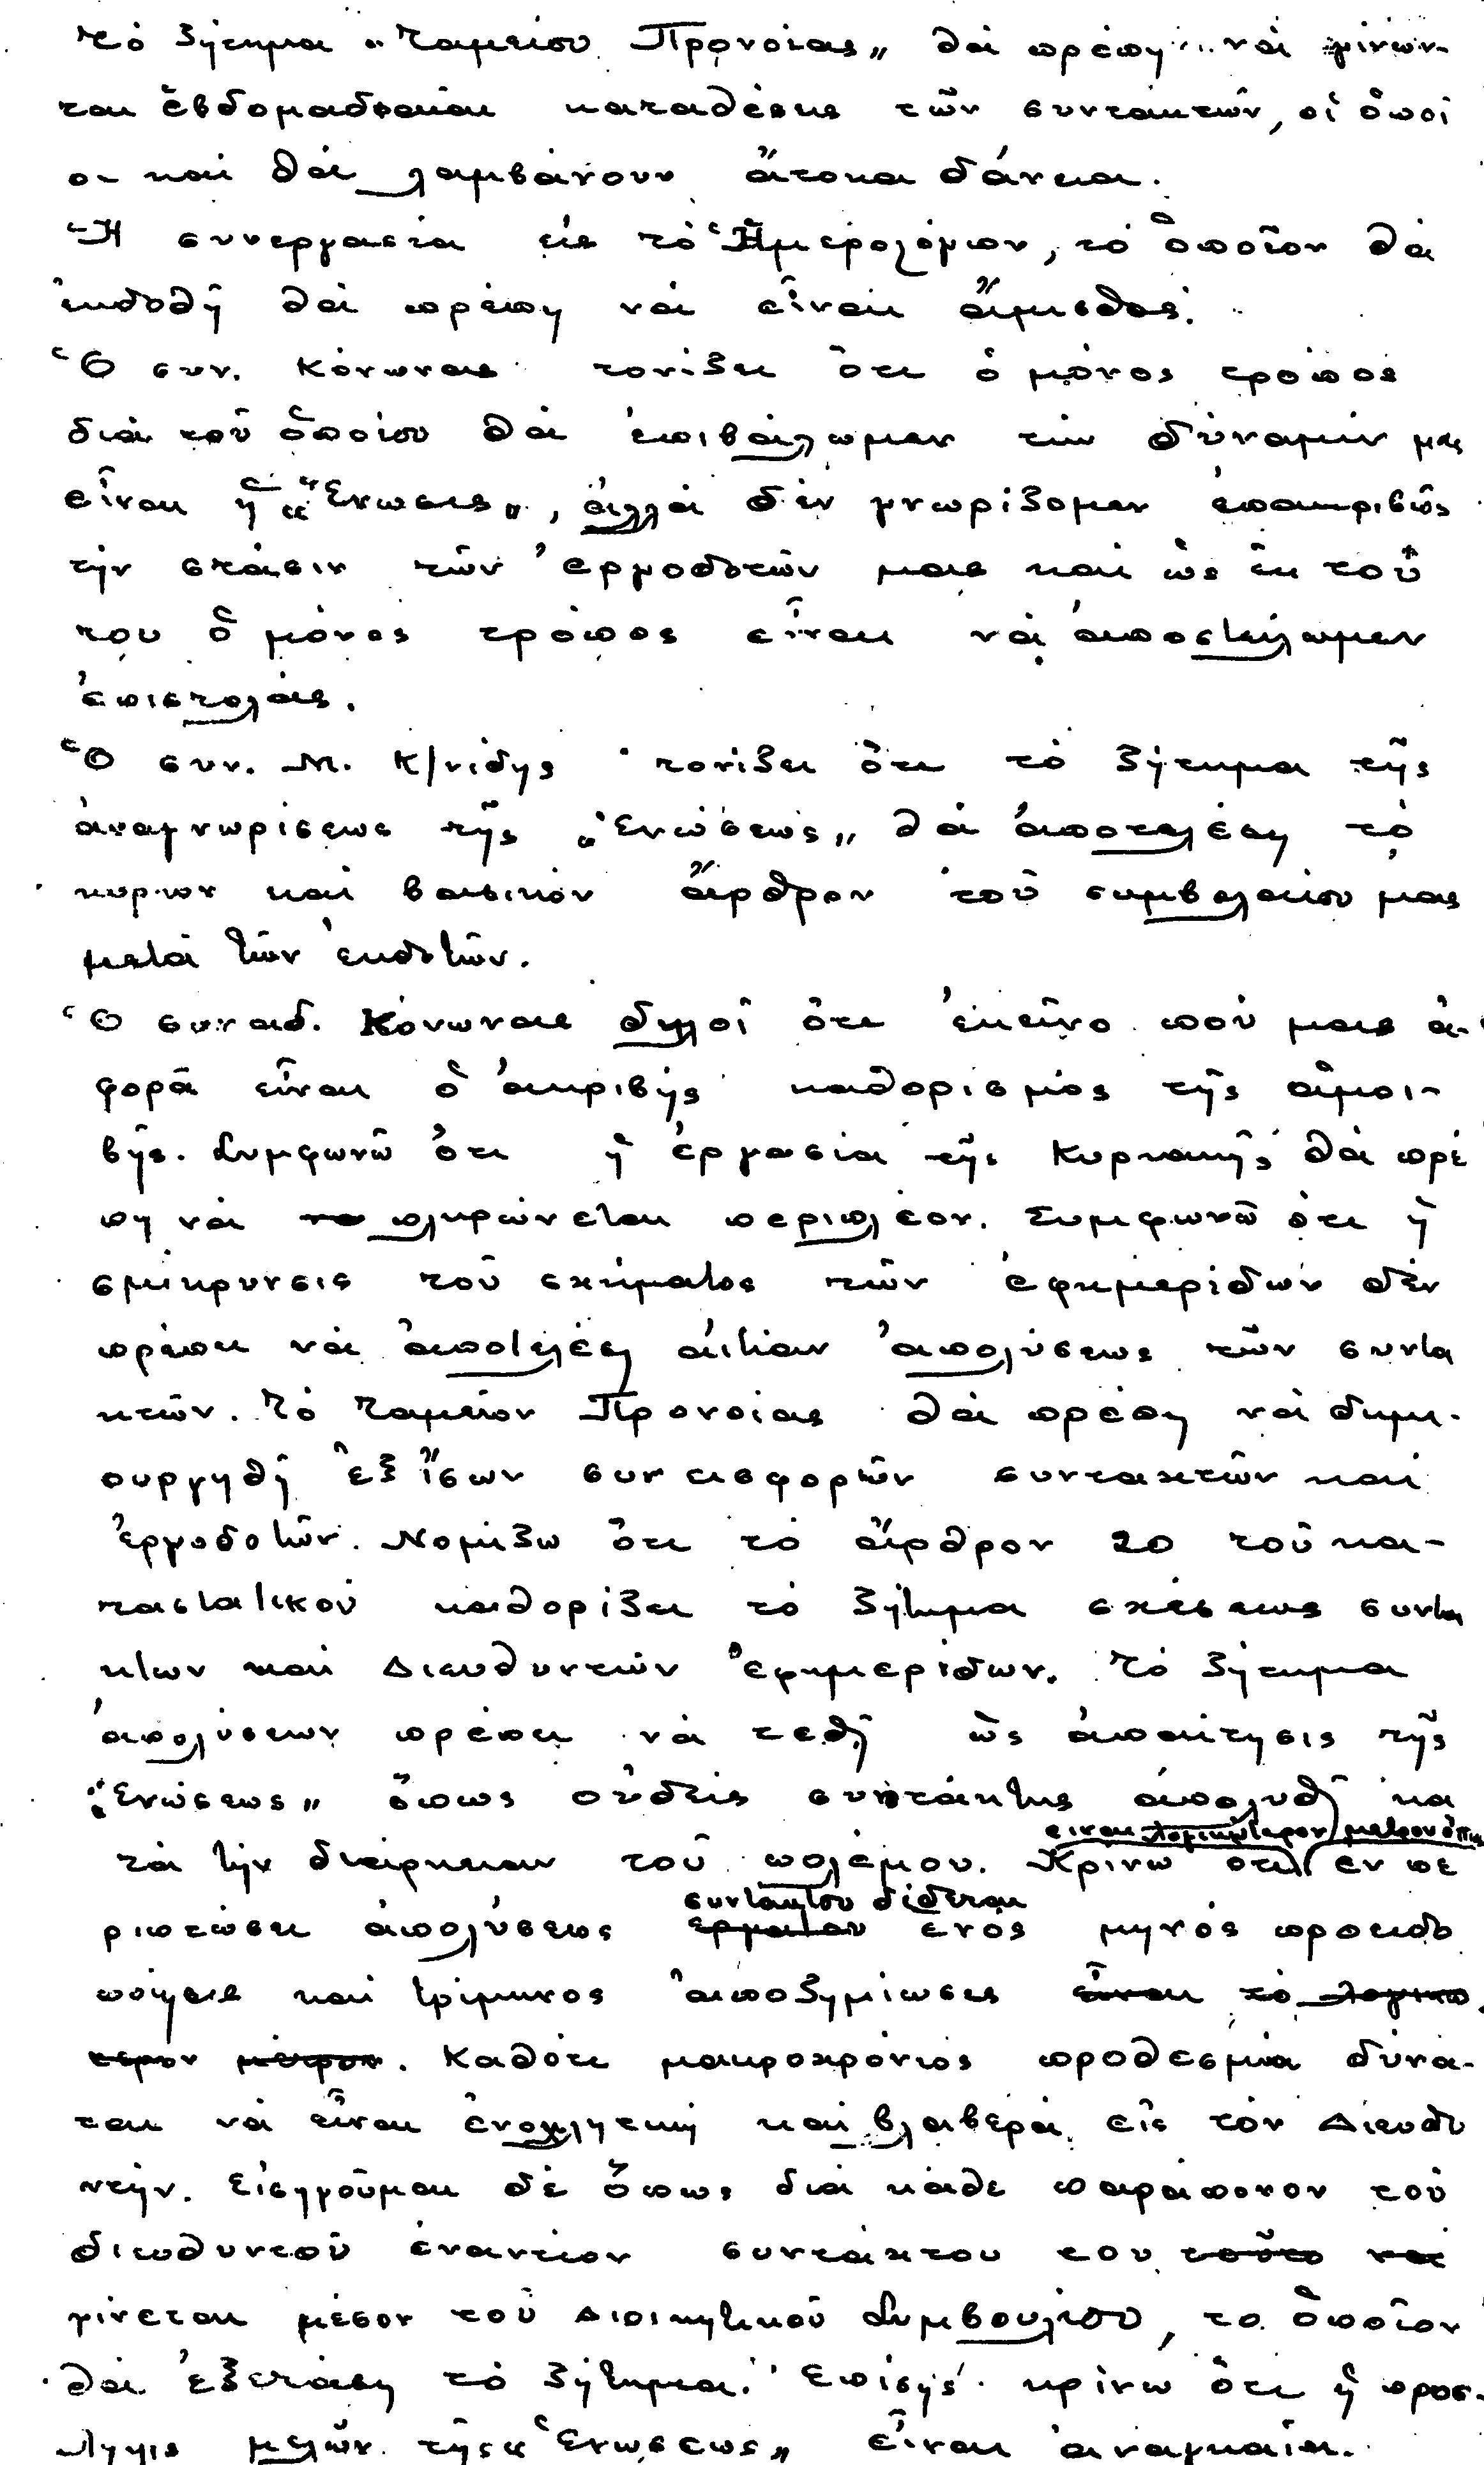 Τό ζήτημα „Ταμείου Προνοίας„ θά πρέπη νά γίνων-
ται ἑβδομαδιαῖαι καταθέσεις τῶν συντακτῶν, οἱ ὁποῖ
οι καί θά λαμβάνουν ἄτοκα δάνεια.
Ἡ συνεργασία εἰς τό Ἡμερολόγιον, τό ὁποῖον θά
ἐκδοθῆ θά πρέπη νά εἶναι ἄμισθος.
Ὁ συν. Κόνωνας τονίζει ὅτι ὁ μόνος τρόπος
διά τοῦ ὁποίου θά ἐπιβάλωμεν τήν δύναμίν μας
εἶναι ἡ „Ἕνωσις„, ἀλλά δέν γνωρίζομεν ἐπακριβῶς
τήν στάσιν τῶν ἐργοδοτῶν μας καί ὡς ἐκ τοῦ
του ὁ μόνος τρόπος εἶναι νά ἀποστείλωμεν
ἐπιστολάς.
Ὁ συν. Μ. Κ/νίδης τονίζει ὅτι τό ζήτημα τῆς
ἀναγνωρίσεως τῆς „Ἑνώσεως„ θά ἀποτελέση τό
κύριον καί βασικόν ἄρθρον τοῦ συμβολαίου μας
μετά τῶν ἐκδοτῶν.
Ὁ συναδ. Κόνωνας δηλοῖ ὅτι ἐκεῖνο πού μας ἀ-
φορᾶ εἶναι ὁ ἀκριβής καθορισμός τῆς ἀμοι-
βῆς. Συμφωνῶ ὅτι ἡ ἐργασία τῆς Κυριακῆς θά πρέ
πη νά πληρώνεται περιπλέον. Συμφωνῶ ὅτι ἡ
σμίκρυνσις τοῦ σχήματος τῶν ἐφημερίδων δέν
πρέπει νά ἀποτελέση αἰτίαν ἀπολύσεως τῶν συντα
κτῶν. Τό Ταμεῖον Προνοίας θά πρέπη νά δημι-
ουργηθῆ ἐξ ἴσων συνεισφορῶν συντακτῶν καί
ἐργοδοτῶν. Νομίζω ὅτι τό ἄρθρον 20 τοῦ κα-
ταστατικοῦ καθορίζει τό ζήτημα σχέσεως συντα
κτων καί Διευθυντῶν ἐφημερίδων. Τό ζήτημα
ἀπολύσεων πρέπει νά τεθῆ ὡς ἀπαίτησις τῆς
„Ἑνώσεως„ ὅπως οὐδείς συντάκτης ἀπολυθῆ κα
τά τήν διάρκειαν τοῦ πολέμου. Κρίνω ὅτι εἶναι λογικώτερον μέτρον ὅπως ἐν πε
ριπτώσει ἀπολύσεως ἐργάτου συντάκτου δίδεται ἑνός μηνός προειδο
ποίησις καί τρίμηνος ἀποζημίωσις εἶναι τό λογικώ
τερον μέτρον. Καθότι μακροχρόνιος προθεσμία δύνα-
ται νά εἶναι ἐνοχλητική καί βλαβερά εἰς τόν Διευθυ
ντήν. Εἰσηγοῦμαι δέ ὅπως διά κάθε παράπονον τοῦ
διευθυντοῦ ἐναντίον συντάκτου του τοῦτο νά
γίνεται μέσον τοῦ Διοικητικοῦ Συμβουλίου, το ὁποῖον
θά ἐξετάση τό ζήτημα. Ἐπίσης κρίνω ὅτι ἡ προσ-
ληψις μελῶν τῆς „Ἑνώσεως„ εἶναι ἀναγκαία.